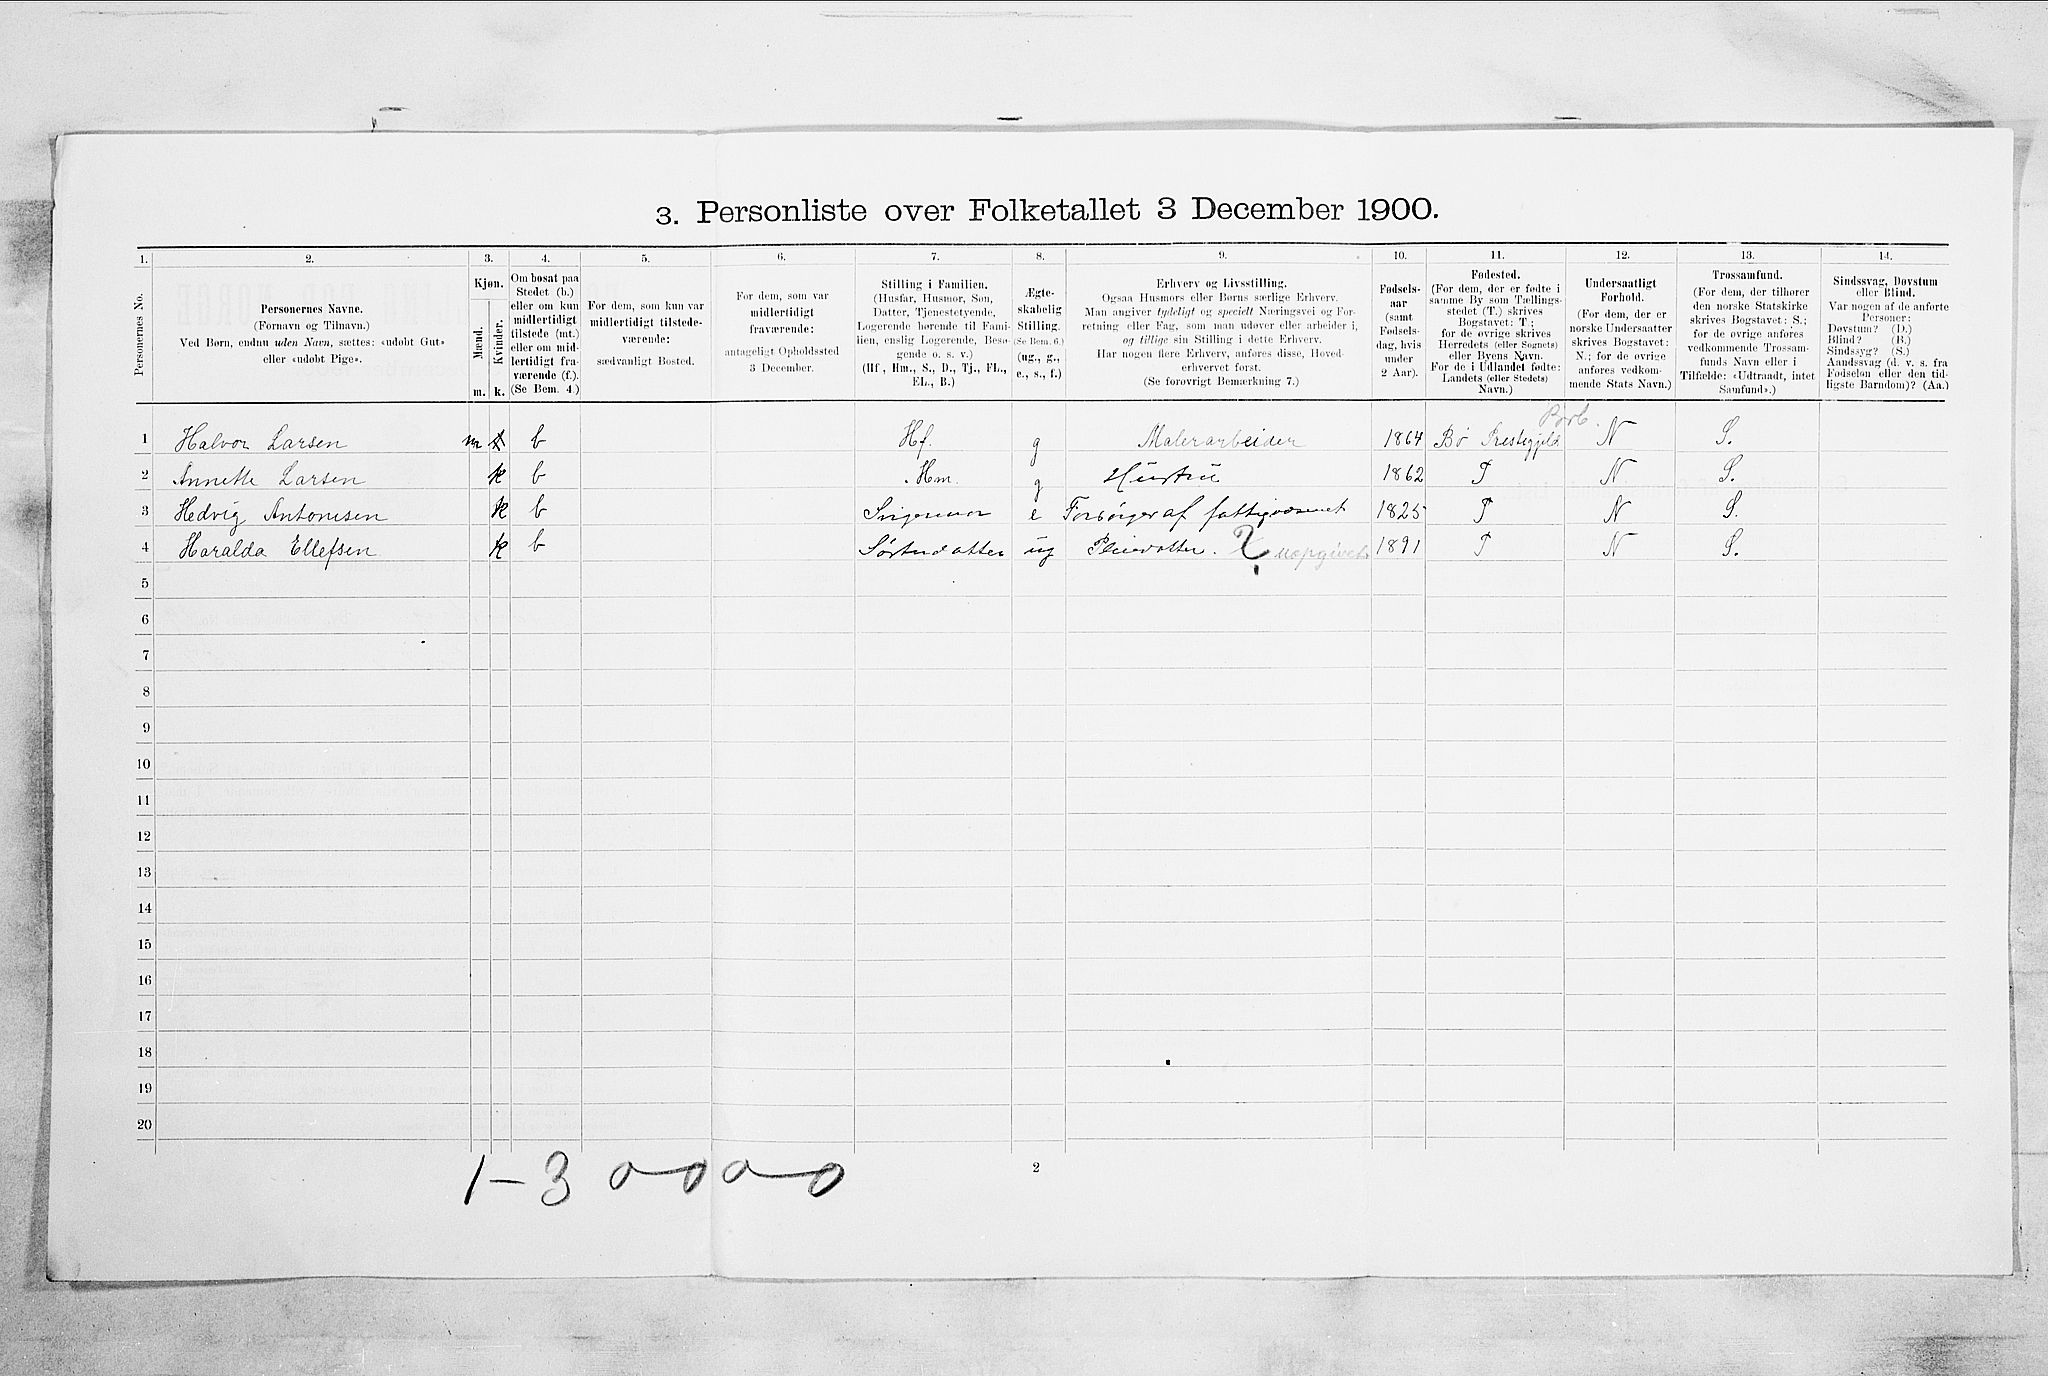 3. Personliste over Folketallet 3 December 1900.
1. 2. 3. 4. 5. 6. 7. 8. 9. 10. 11. 12. 13. 14.
Personernes No.
Personernes Navne.
(Fornavn og Tilnavn.)
Ved Børn, endnu uden Navn, sættes: «udøbt Gut»
eller «udøbt Pige».
Kjøn.
Mænd.
Kvinder.
m. k.
Om bosat paa
Stedet (b.)
eller om kun
midlertidigt
tilstede (mt.)
eller om mid-
lertidigt fra-
værende (f.).
(Se Bem. 4.)
For dem, som kun var
midlertidigt tilstede-
værende:
sædvanligt Bosted.
For dem, som var
midlertidigt
fraværende:
antageligt Opholdssted
3 December.
Stilling i Familien.
(Husfar, Husmor, Søn,
Datter, Tjenestetyende,
Logerende hørende til Fami-
lien, enslig Logerende, Besø-
gende o. s. v.)
(Hf, Hm., S., D., Tj., FL.,
EL., B.)
Ægte-
skabelig
Stilling.
(Se Bem. 6.)
(ug., g.,
e., s., f.)
Erhverv og Livsstilling.
Ogsaa Husmors eller Børns særlige Erhverv.
Man angiver tydeligt og specielt Næringsvei og For-
retning eller Fag, som man udøver eller arbeider i,
og tillige sin Stilling i dette Erhverv.
Har nogen flere Erhverv, anføres disse, Hoved-
erhvervet først.
(Se forøvrigt Bemærkning 7.)
Fødsels-
aar
(samt
Fødsels-
dag, hvis
under
2 Aar).
Fødested.
(For dem, der er fødte i
samme By som Tællings-
stedet (T.) skrives
Bogstavet: T.;
for de øvrige skrives
Herredets (eller Sognets)
eller Byens Navn.
For de i Udlandet fødte:
Landets (eller Stedets)
Navn.)
Undersaatligt
Forhold.
(For dem, der er
norske Undersaatter
skrives Bogstavet:
N.; for de øvrige
anføres vedkom-
mende Stats Navn.)
Trossamfund.
(For dem, der tilhører
den norske Statskirke
skrives Bogstavet: S.;
for de øvrige anføres
vedkommende Trossam-
funds Navn eller i
Tilfælde: «Udtraadt, intet
Samfund».)
Sindssvag, Døvstum
eller Blind.
Var nogen af de anførte
Personer:
Døvstum? (D.)
Blind? (B.)
Sindssyg? (S.)
Aandssvag (d. v. s. fra
Fødselen eller den tid-
ligste Barndom)? (Aa.)
1 Halvor Larsen m k b Hf. g Malerarbeider 1864 Bø Prestegjeld N S.
2 Annette Larsen k b Hm. g Hustru 1862 T N S.
3 Hedvig Antonisen k b Svigermor e Forsörges af fattigvæsenet 1825 T N S.
4 Haralda Ellefsen k b Søsterdatter ug Pleiedatter. ? uopgivet 1891 T N S.
5
6
7
8
9
10
11
12
13
14
15
16
17
18
19
20
1-3 0-0 0-0
2